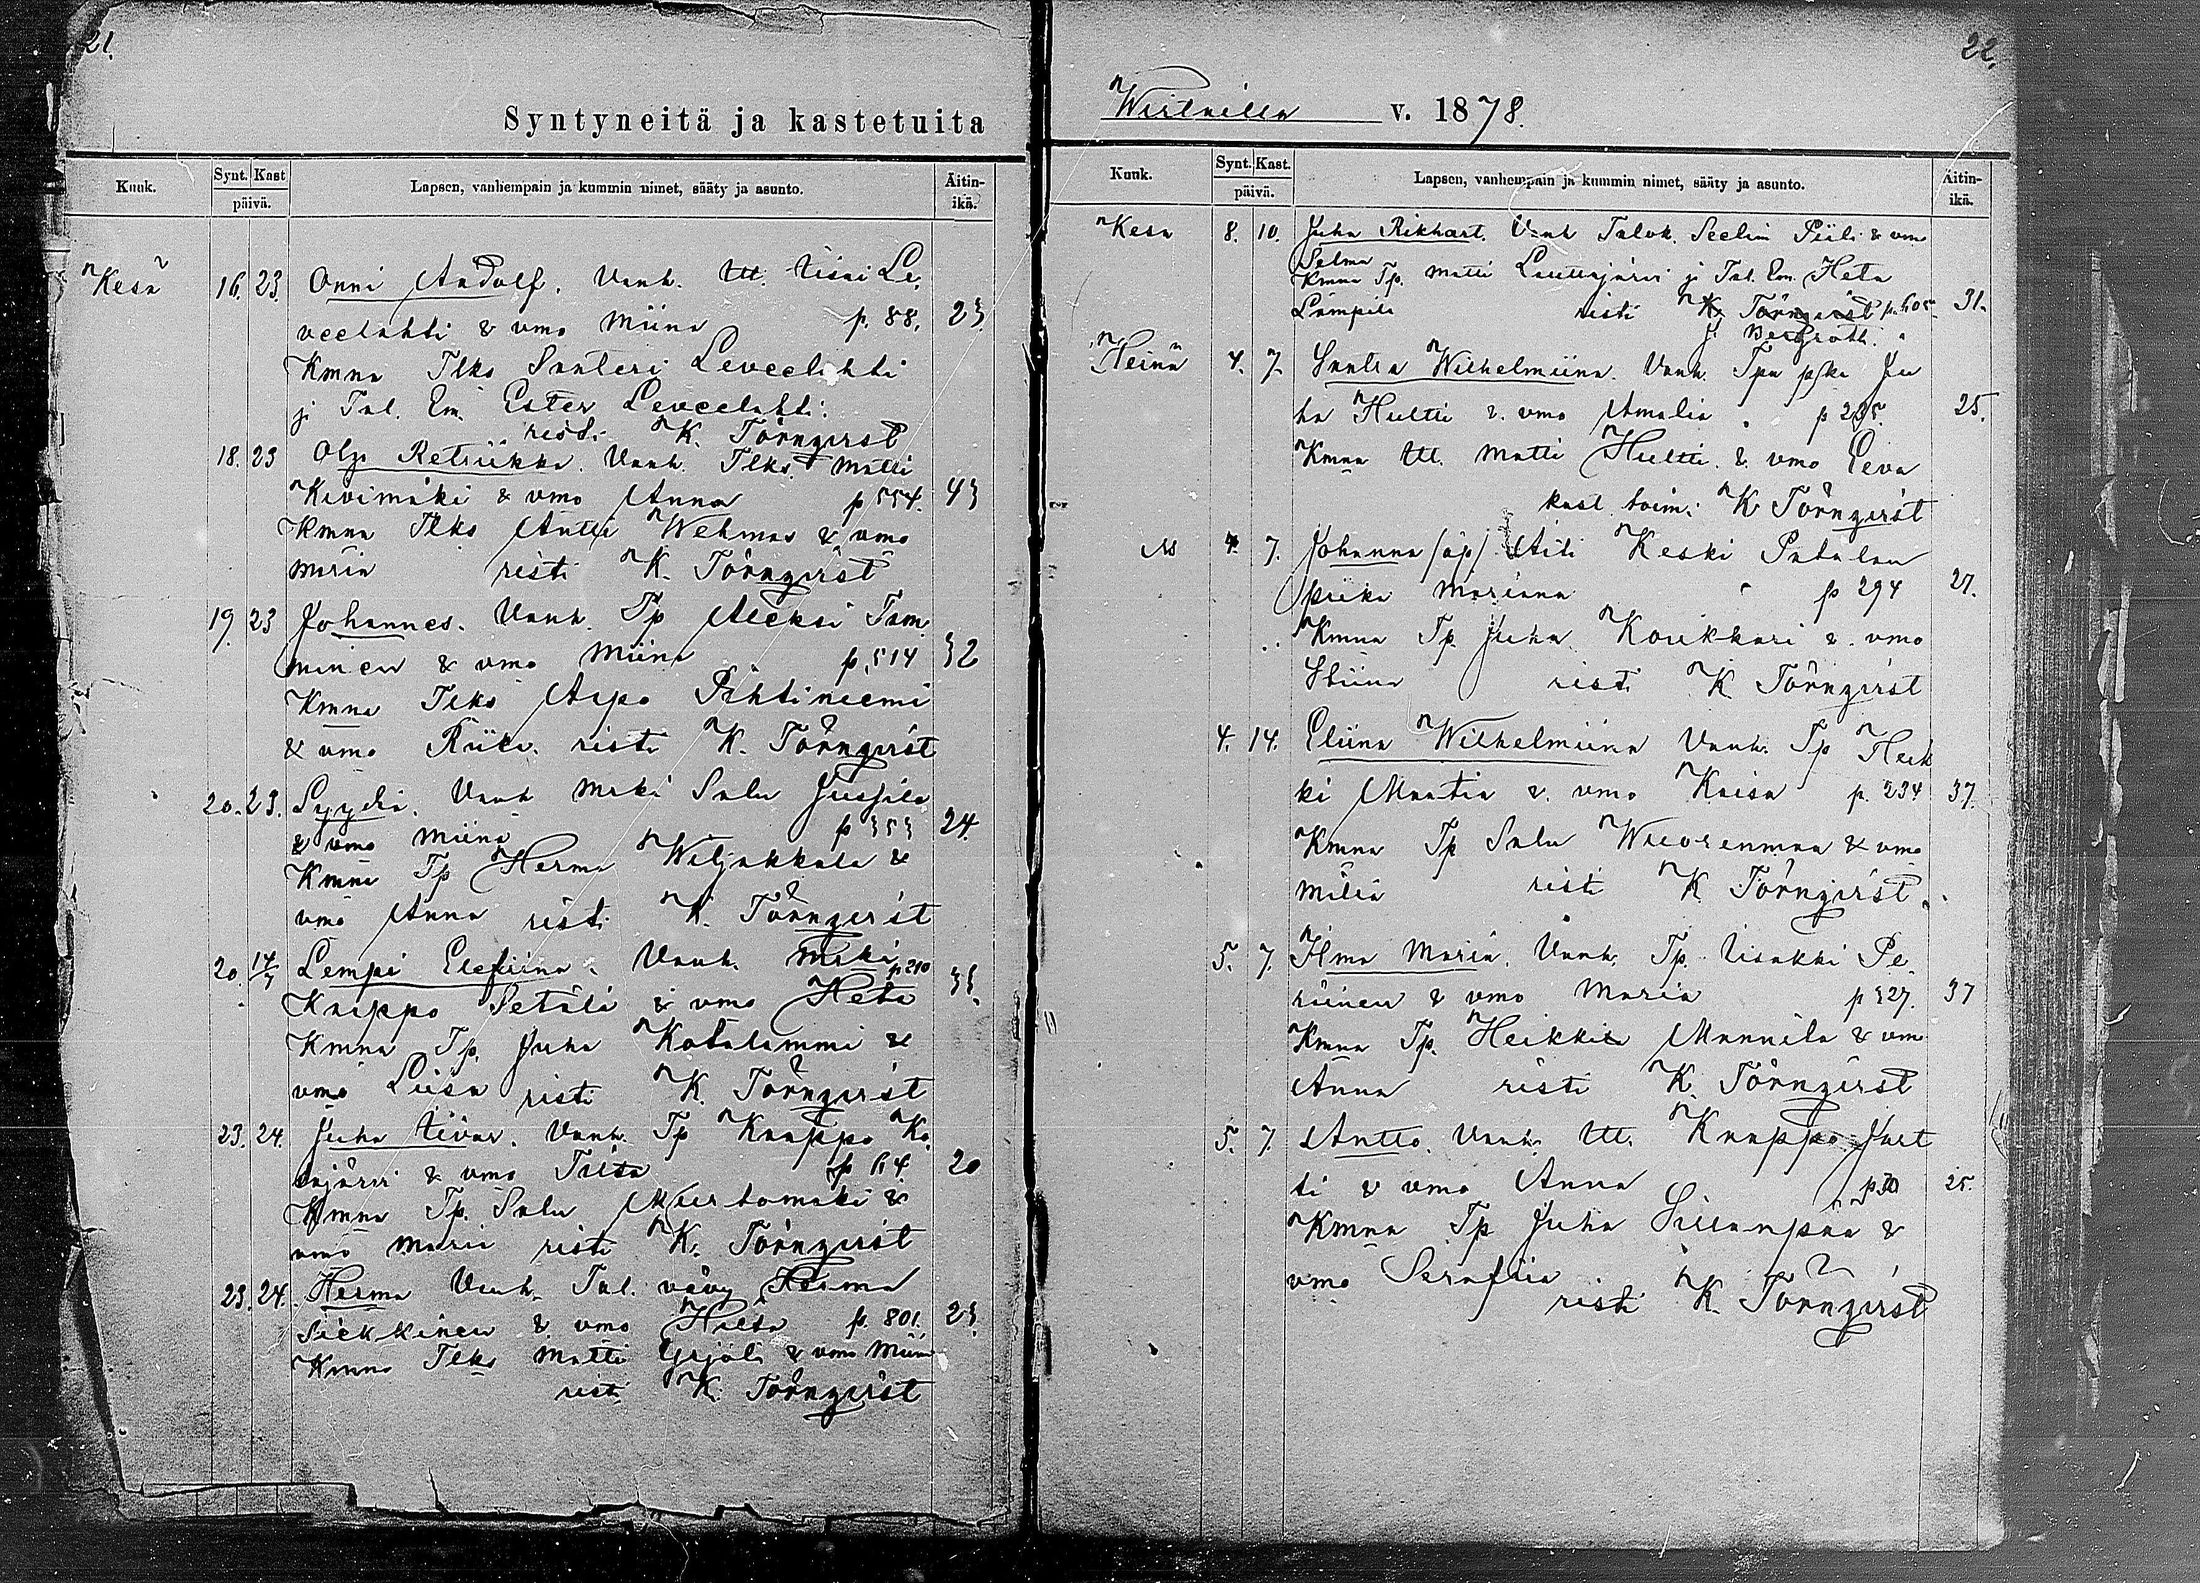 21.
Syntyneitä ja kastetuita
Kuuk. Synt. Kast päivä. Lapsen, vanhempain ja kummin nimet, sääty ja asunto. Äitin-ikä.
Kesä 16. 23. Onni Andolf. Vanh. Itl. Iisai Le-
veelahti & vmo Miina p. 88. 23.
Kmna Tlks Santeri Leveelahti
ja Tal. Em. Ester Leveelahti.
risti K. Törnqvist
18. 23 Olga Retriikka. Vanh. Tlks. Matti
Kivimäki & vmo Anna p 554. 43
Kmna Tlks Antti Wehmas & vmo
Maria risti K. Törnqvist
19. 23 Johannes. Vanh. Tp Aleksi Tam
minen & vmo Miina p. 514 32
Kmna Tlks Aapo Pihtiniemi
& vmo Riika. risti K. Törnqvist
20. 23. Lyydia. Vanh Mäki Salu Jussila
& vmo Miina p 353 24.
Kmna Tp Herma Wiljakkala &
vmo Anna risti K. Törnqvist
20. 14/7 Lempi Elefiina. Vanh. Mäki p 210
Knappo Setälä & vmo Heta 33.
Kmna Tp. Juha Kotalammi &
vmo Liisa risti K. Törnqvist
23. 24. Juha Iivar. Vanh. Tp Knappo Ko
tajärvi & vmo Tilta p 64. 20
Kmna Tp. Salu Murtomäki &
vmo Maria risti K. Törnqvist
23. 24. Herma Vanh. Tal. vävy Herma
Siekkinen & vmo Hilta p. 801. 23.
Kmna Tlks Matti Yrjölä & vmo Miina
risti K. Törnqvist
22.
Wirtailla v. 1878.
Kuuk. Synt. Kast. päivä. Lapsen, vanhempain ja kummin nimet, sääty ja asunto. Äitin-ikä.
Kesä 8. 10. Juha Rikhart. Vanh Talok. Seelim Piili & vmo
Selma
Kmna Tp. Matti Lauttajärvi ja Tal. Em. Heta
Lämpili risti K. Törnqvist p. 605. 31.
J. Bergroth.
Heinä 4. 7. Santra Wilhelmiina. Vanh. Tpa Ju
ha Hultti & vmo Amalia p 235. 25.
Kmna Itl. Matti Hultti & vmo Eeva
kast. toim. K Törnqvist
4. 7. Johanna (äp) Äiti Keski Patalan
piika Marianna p 294 27.
Kmna Tp. Juha Koukkari & vmo
Stiina risti K Törnqvist
4. 14. Eliina Wilhelmiina Vanh. Tp Heik
ki Mantia & vmo Kaisa p. 234 37.
Kmna Tp Salu Wuorenmaa & vmo
Milia risti K Törnqvist.
5. 7. Ilma Maria. Vanh. Tp. Iisakki Pe-
räinen & vmo Maria p 327. 37
Kmna Tp. Heikki Mannila & vmo
Anna risti K. Törnqvist
5. 7. Antto. Vanh. Itl. Knappo Jart
ti & vmo Anna p 30 25.
Kmna Tp Juha Sillanpää &
vmo Serafiia
risti K. Törnqvist